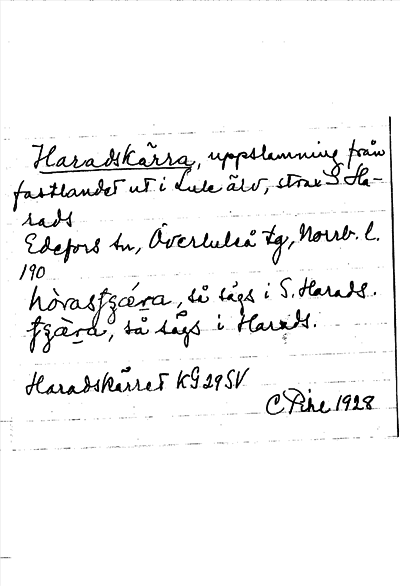 Haradskärra, uppslamning från
fastlandet ut i Lule älv, strax S Ha-
rads
Edefors sn, Överluleå tg, Norrb. l.
190
hòrasʃʒǽra, så sägs i S. Harads.
ʃʒæ̀ra, så sägs i Harads.
Haradskärret KG 29 SV
C Pihl 1928